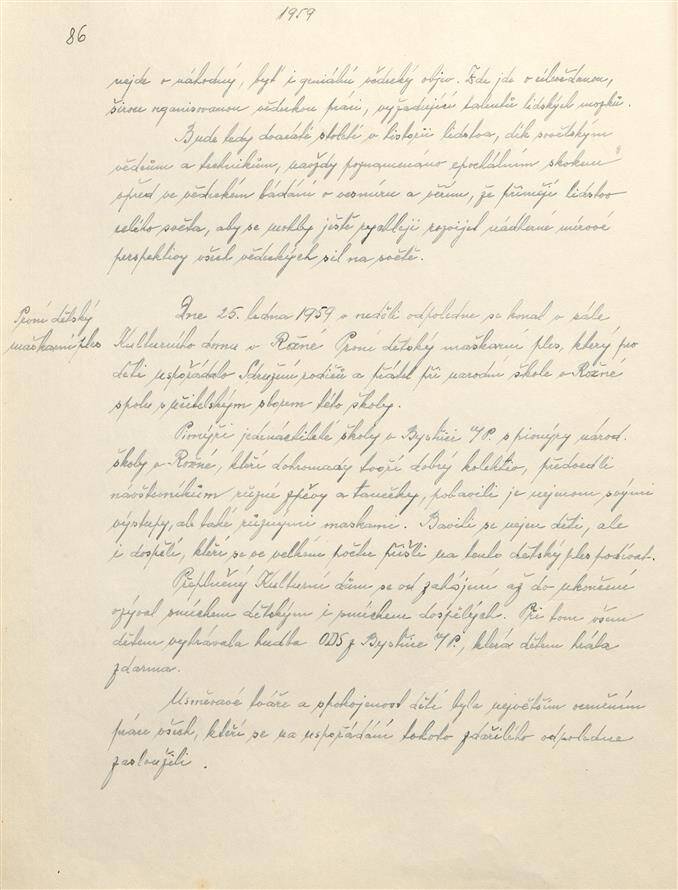 1959
86
nejde o náhodný, byť i geniální vědecký objev. Zde jde o cílevědomou,
široce organisovanou vědeckou práci, vyžadující talentů lidských mozků.
Bude tedy dvacáté století v historii lidstva, dík sovětským
vědcům a technikům, navždy poznamenáno epochálním skokem
vpřed ve vědeckém bádání o vesmíru a věřím, že přinutí lidstvo
celého světa, aby se mohly ještě rychleji rozvíjet nádherné mírové
perspektivy všech vědeckých sil na světě.
První dětský
maškarní ples
Dne 25. ledna 1959 v neděli odpoledne se konal v sále
Kulturního domu v Rožné První dětský maškarní ples, který pro
děti uspořádalo Sdružení rodičů a přátel při národní škole v Rožné
spolu s učitelským sborem této školy.
Pionýři jedenáctileté školy v Bystřici n/P. s pionýry národ.
školy v Rožné, kteří dohromady tvoří dobrý kolektiv, předvedli
návštěvníkům různé zpěvy a tanečky, pobavili je nejenom svými
výstupy, ale také různými maskami. Bavili se nejen děti, ale
i dospělí, kteří se ve velkém počtu přišli na tento dětský ples podívat.
Přeplněný Kulturní dům se od zahájení až do ukončení
ozýval smíchem dětským i smíchem dospělých. Při tom všem
dětem vyhrávala hudba ODS z Bystřice n/P., která dětem hrála
zdarma.
Usměvavé tváře a spokojenost dětí byla největším oceněním
práce všech, kteří se na uspořádání tohoto zdařilého odpoledne
zasloužili.